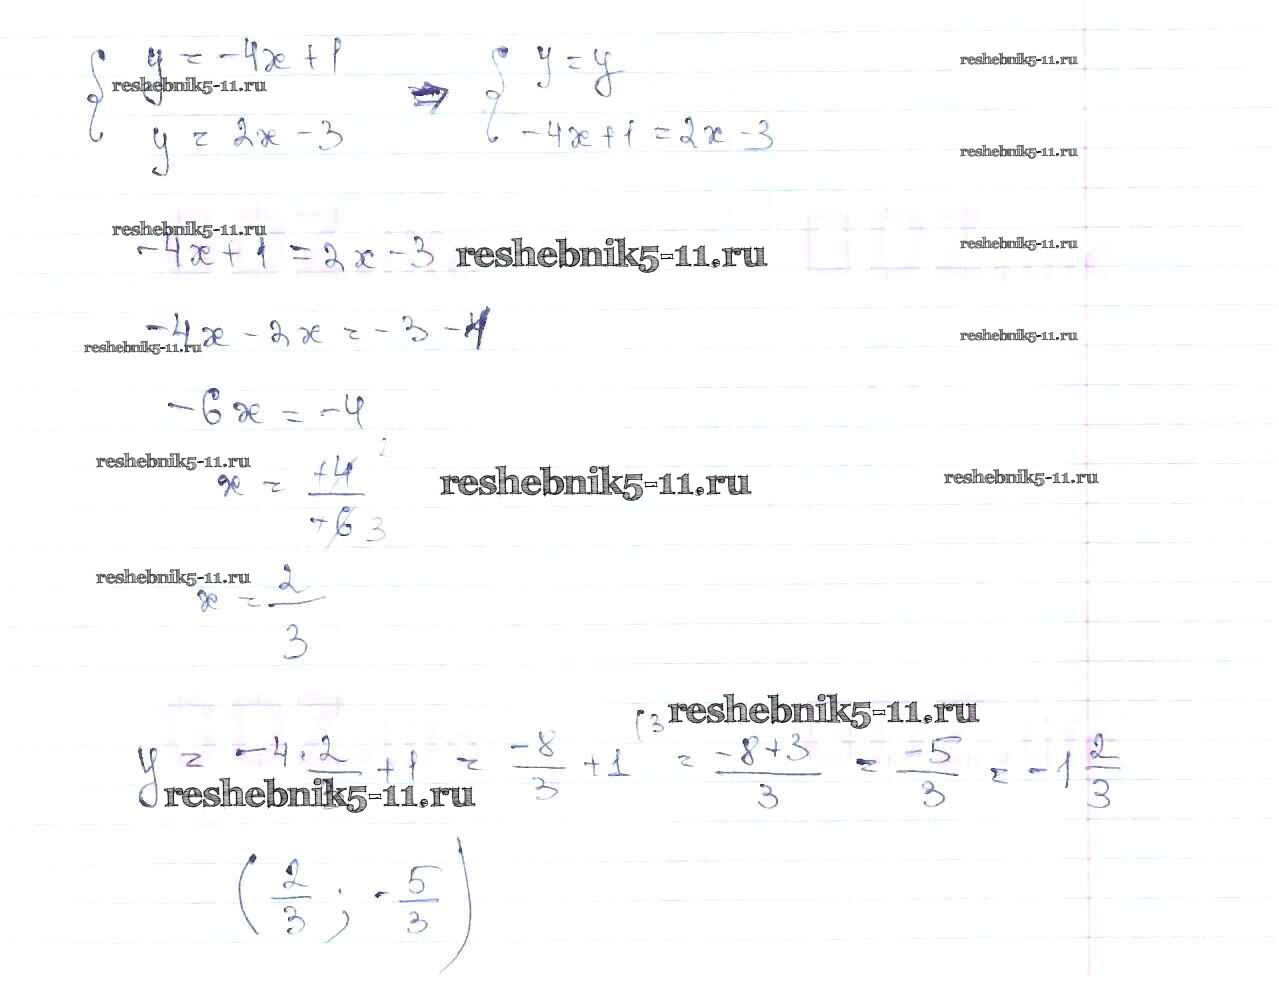 { y = -4x + 1 ⇒ { y = y
reshebnik5-11.ru reshebnik5-11.ru
y = 2x - 3 -4x + 1 = 2x - 3
reshebnik5-11.ru
reshebnik5-11.ru
-4x + 1 = 2x - 3 reshebnik5-11.ru reshebnik5-11.ru
-4x - 2x = -3 - 1 reshebnik5-11.ru
reshebnik5-11.ru
-6x = -4
reshebnik5-11.ru
x = +4/+6 3 reshebnik5-11.ru reshebnik5-11.ru
reshebnik5-11.ru
x = 2/3
reshebnik5-11.ru
y = -4·2/3 + 1 = -8/3 + 1 (3 = -8+3/3 = -5/3 = -1 2/3
reshebnik5-11.ru
(2/3 ; -5/3)